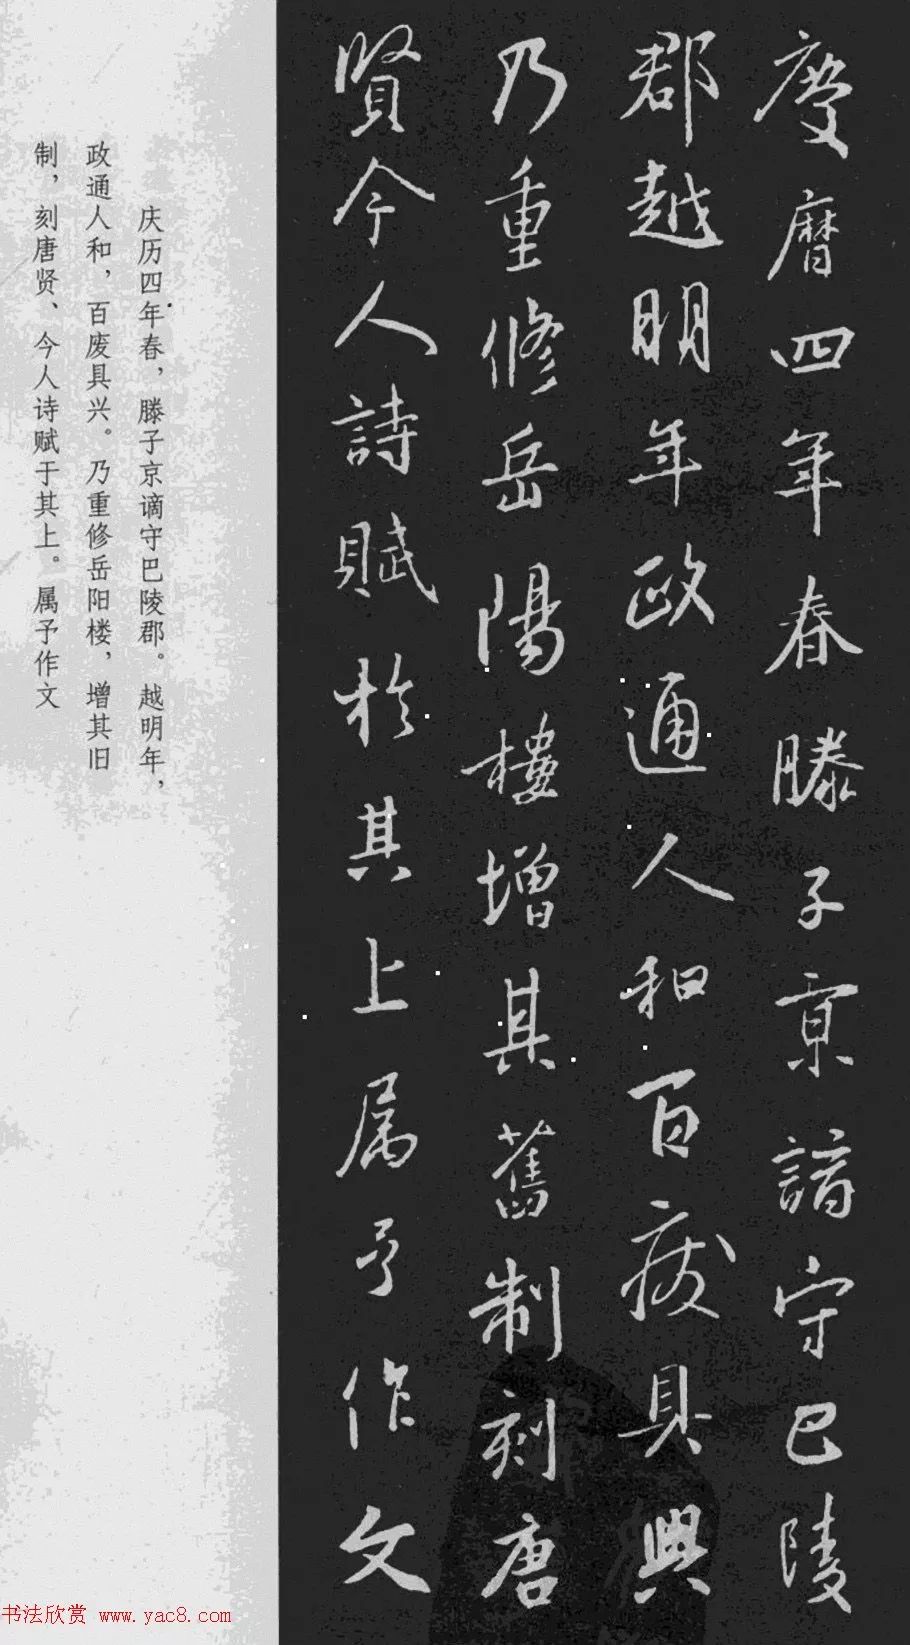 慶曆四年春滕子京謫守巴陵
郡越明年政通人和百廢具興
乃重修岳陽樓增其舊制刻唐
賢今人詩賦於其上属予作文
庆历四年春，滕子京谪守巴陵郡。越明年，
政通人和，百废具兴。乃重修岳阳楼，增其旧
制，刻唐贤、今人诗赋于其上。属予作文
书法欣赏 www.yac8.com